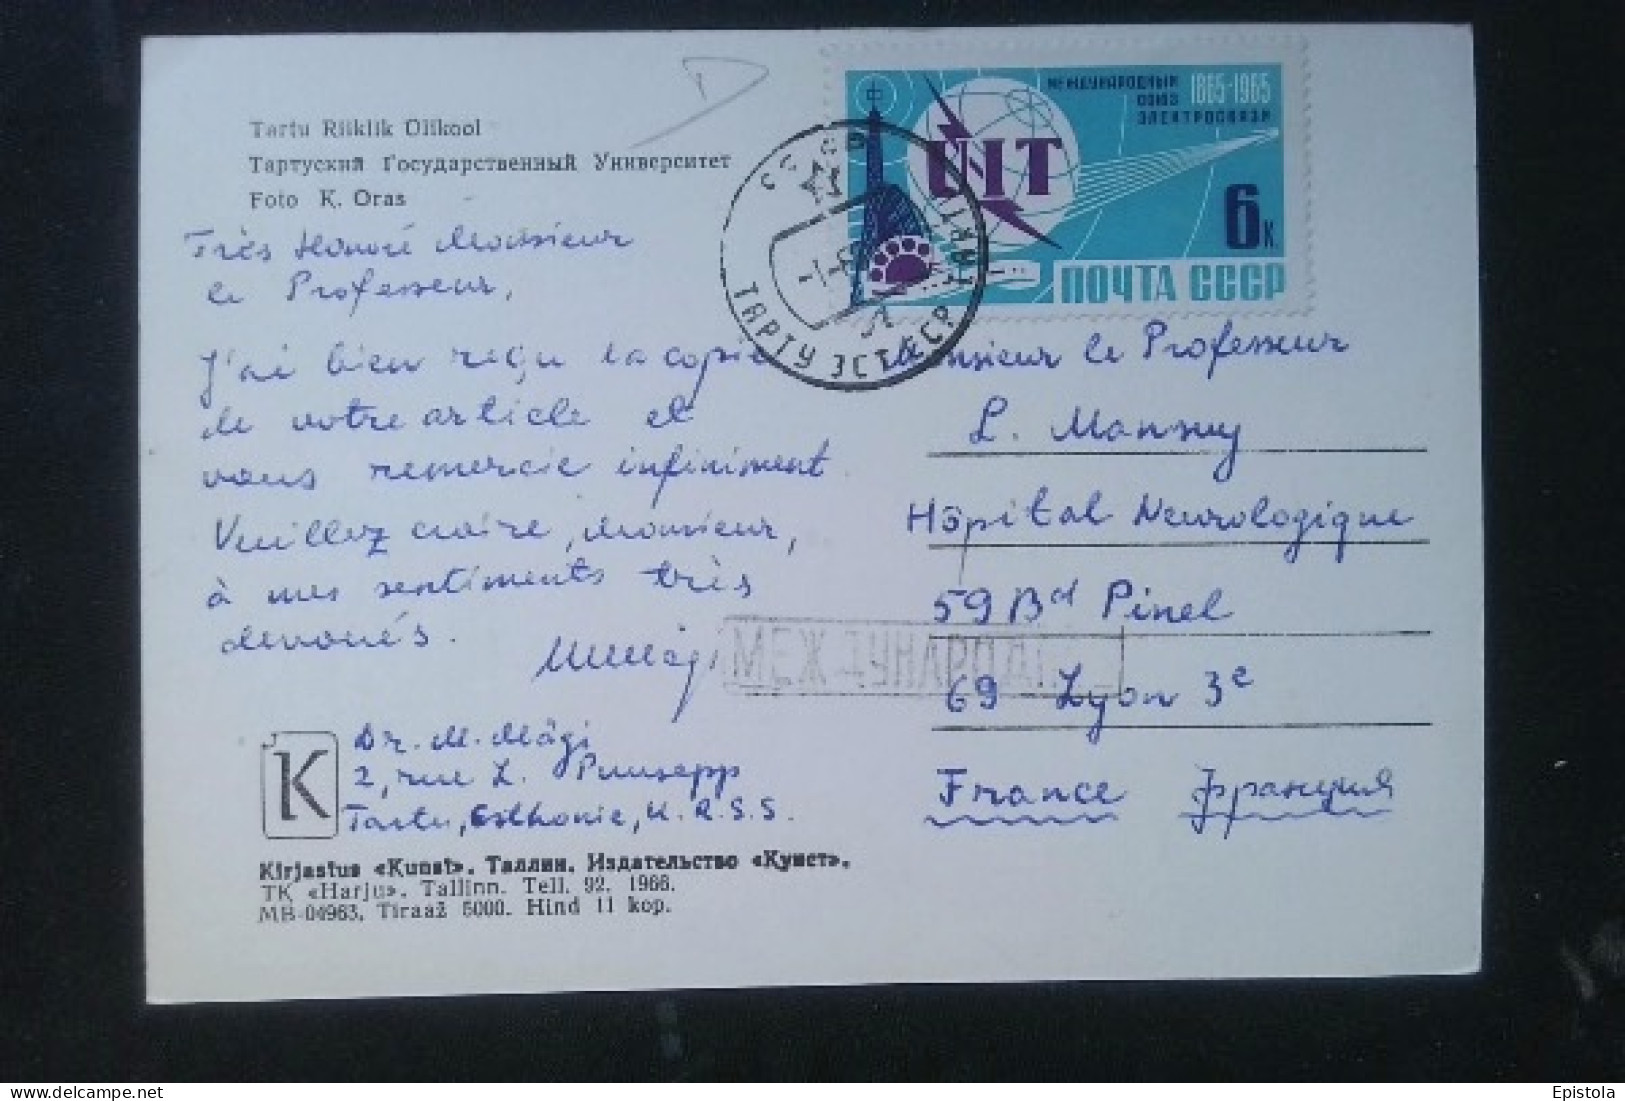 Tartu Riiklik Ülikool
Тартуский Государственный Университет
Foto K. Oras
Très Honoré Monsieur
le Professeur,
J'ai bien reçu la copie
de votre article et
vous remercie infiniment.
Veuillez croire, Monsieur,
à mes sentiments très
dévoués.
Dr. M. Mägi
2, rue L. Puusepp
Tartu, Esthonie, U.R.S.S.
K
Kirjastus «Kunst». Таллин. Издательство «Кунст».
TK «Harju». Tallinn. Tell. 92. 1966.
MB-04963. Tiraaž 5000. Hind 11 kop.
МЕЖДУНАРОДНЫЙ 1865-1965
СОЮЗ
ЭЛЕКТРОСВЯЗИ
UIT
6к.
ПОЧТА СССР
СССР
ТАРТУ ЭСТ.ССР TARTU
Monsieur le Professeur
L. Mansuy
Hôpital Neurologique
59 Bd Pinel
МЕЖДУНАРОДН
69 Lyon 3e
France Франция
Epistola